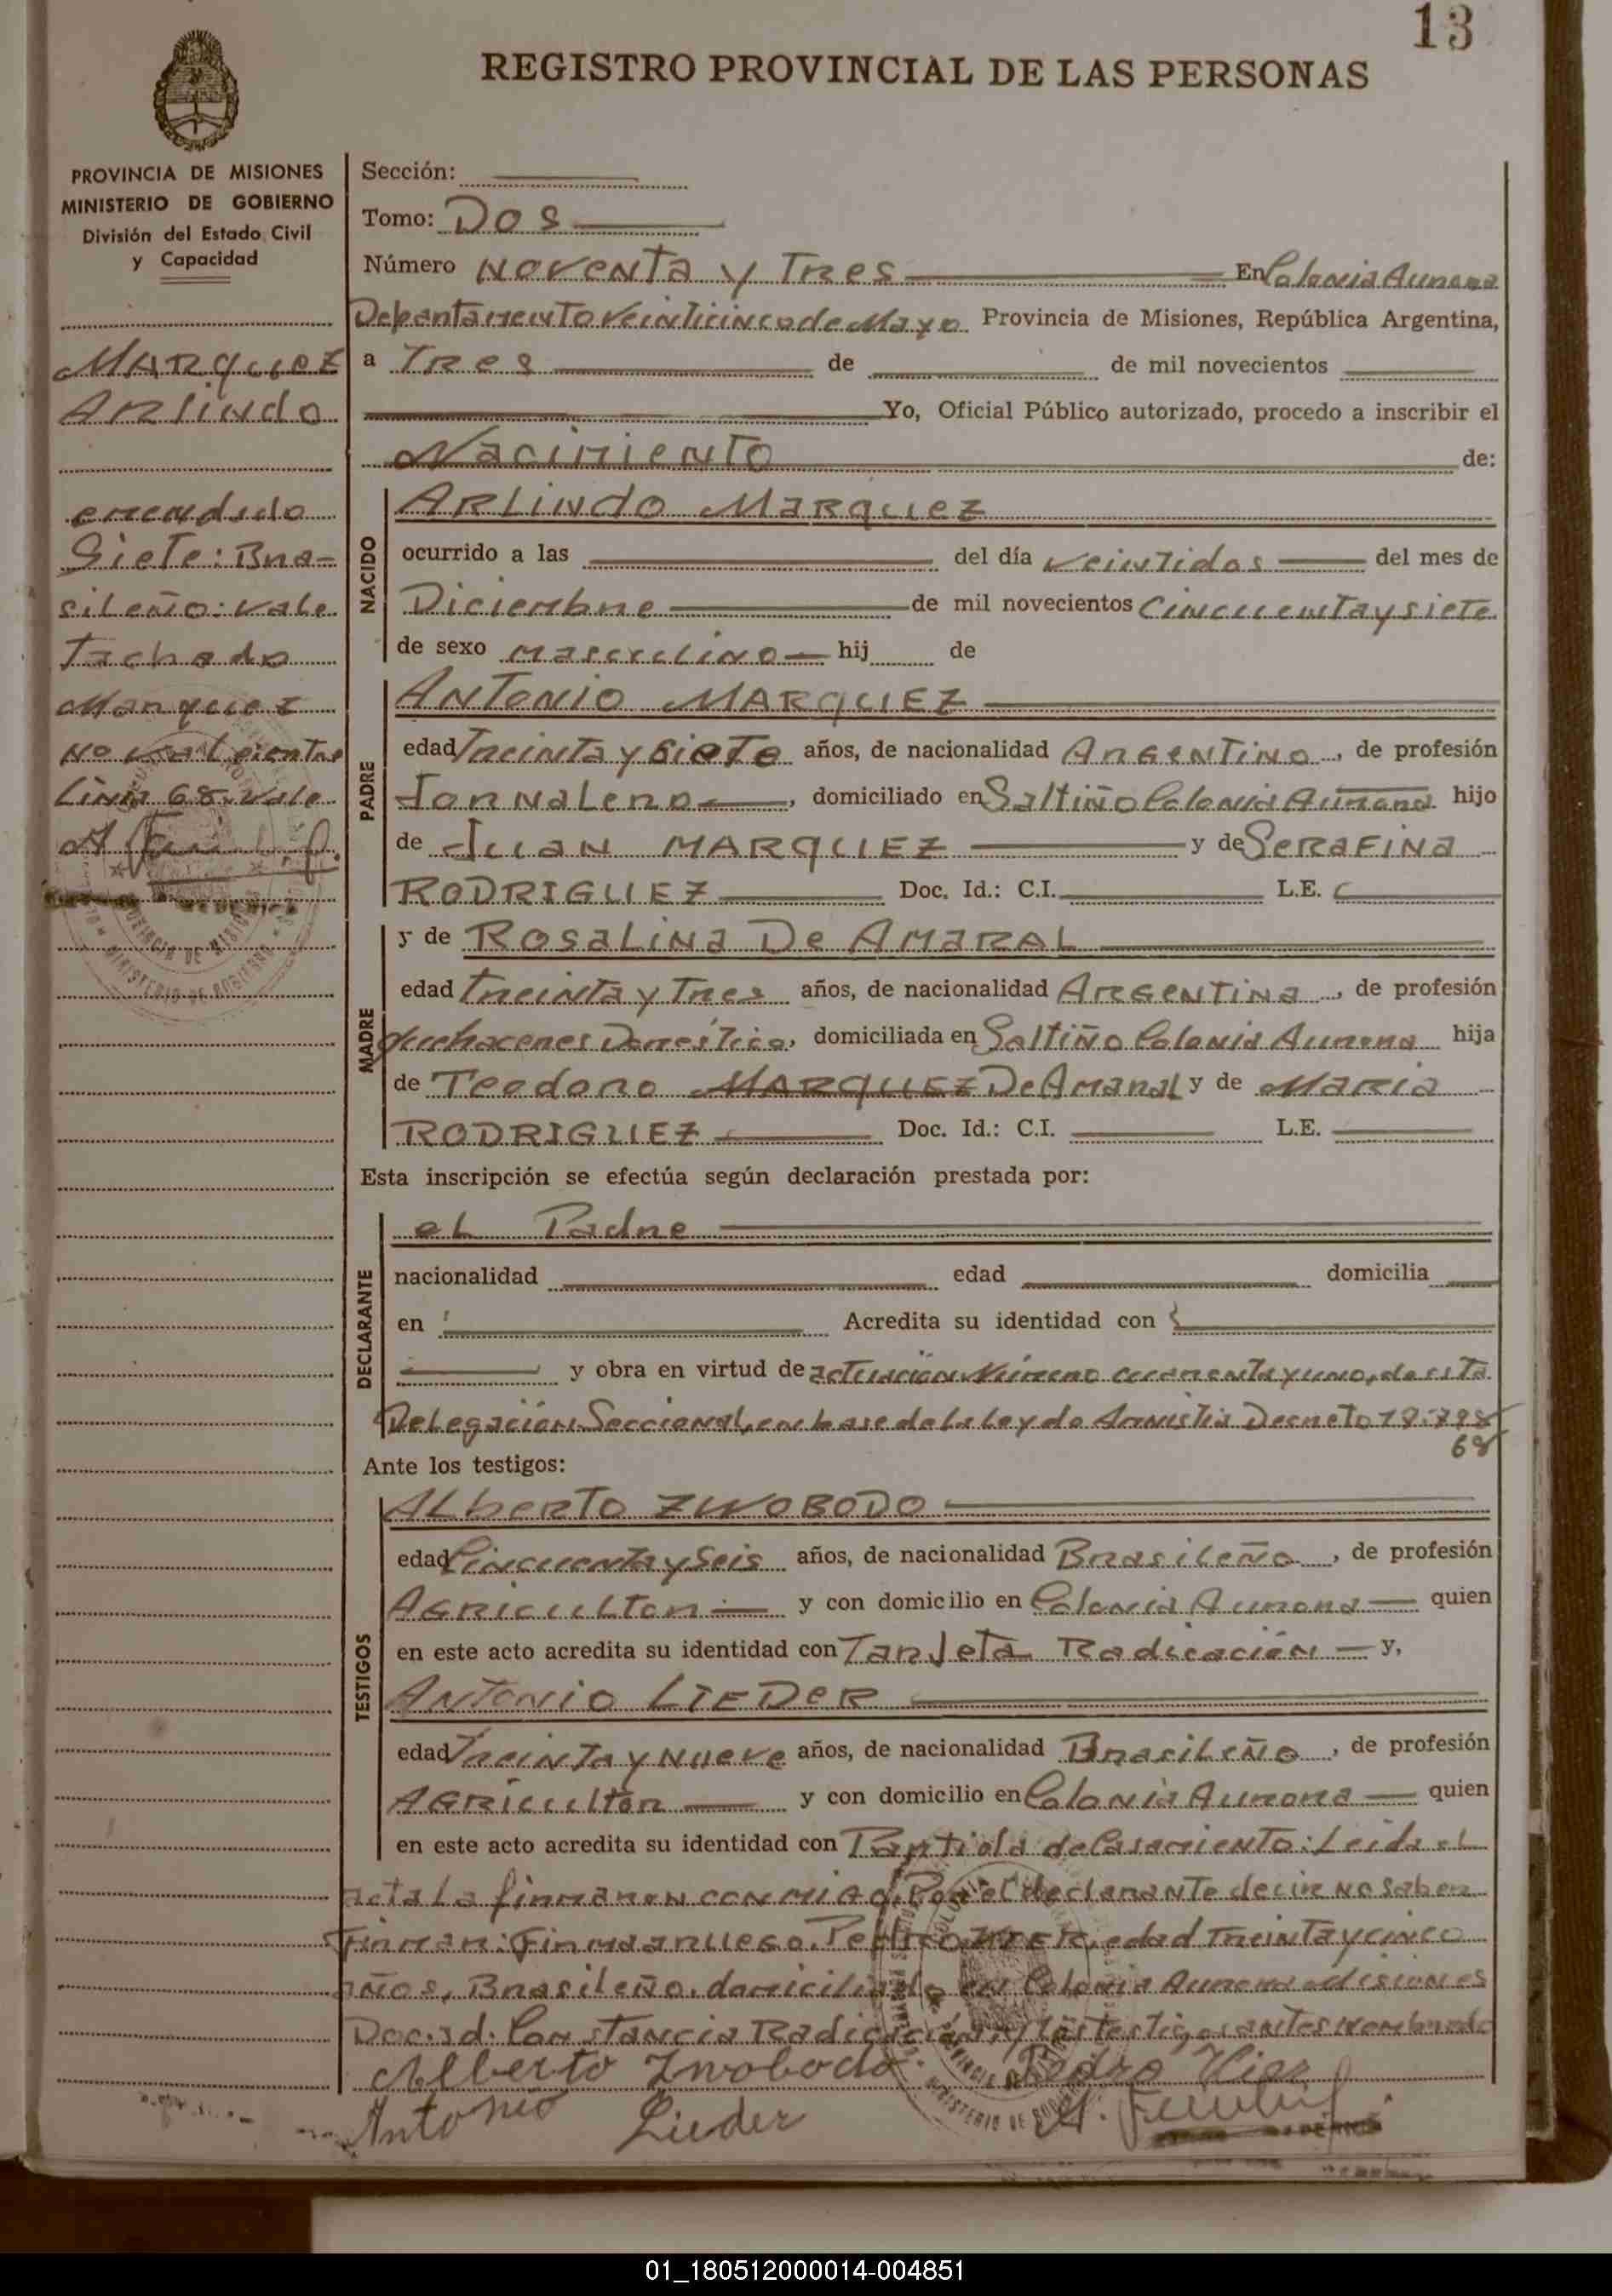 13
REGISTRO PROVINCIAL DE LAS PERSONAS
PROVINCIA DE MISIONES
MINISTERIO DE GOBIERNO
División del Estado Civil
y Capacidad
MARquez
ARlindo
emendado
Siete: Bra-
sileño: vale
Tachado
Marquez
No vale; entre
Linia 68. Vale
Sección:
Tomo: Dos
Número Noventa y Tres En Colonia Aurora
Departamento Veinticinco de Mayo Provincia de Misiones, República Argentina,
a Tres de de mil novecientos
Yo, Oficial Público autorizado, procedo a inscribir el
Nacimiento de:
NACIDO
ARLINDO MARquez
ocurrido a las del día veintidos del mes de
Diciembre de mil novecientos Cincuentaysiete
de sexo masculino hij de
PADRE
ANTONIO MARQUEZ
edad Treinta y Siete años, de nacionalidad Argentino, de profesión
Jornalero, domiciliado en Saltiño Colonia Aurora hijo
de Juan MARQUEZ y de SERAFINA
RODRIGUEZ Doc. Id.: C.I. L.E.
MADRE
y de Rosalina De AMARAL
edad Treinta y Tres años, de nacionalidad Argentina, de profesión
Quehaceres Doméstico, domiciliada en Saltiño Colonia Aurora hija
de Teodoro MARQUEZ De Amaral y de Maria
RODRIGUEZ Doc. Id.: C.I. L.E.
Esta inscripción se efectúa según declaración prestada por:
DECLARANTE
el Padre
nacionalidad edad domicilia
en Acredita su identidad con
y obra en virtud de actuación Número cuarenta y uno, de esta
Delegación Seccional, en base de la Ley de Amnistia Decreto 17.798
68
Ante los testigos:
TESTIGOS
ALberTO ZWOBODO
edad Cincuenta y Seis años, de nacionalidad Brasileño, de profesión
Agricultor y con domicilio en Colonia Aurora quien
en este acto acredita su identidad con Tarjeta Radicación y,
ANTONIO LIEDER
edad Treinta y Nueve años, de nacionalidad Brasileño, de profesión
Agricultor y con domicilio en Colonia Aurora quien
en este acto acredita su identidad con Partida de Casamiento: Leida el
acta la firmaron con migo. Por el declarante decir no saber
Firmar: Firma a ruego. edad Treinta y cinco
años, Brasileño, domiciliado en Colonia Aurora Misiones
Doc. id. Constancia Radicación, y los testigos antes nombrado
Alberto Zwobodo Pedro
Antonio Lieder
01_180512000014-004851